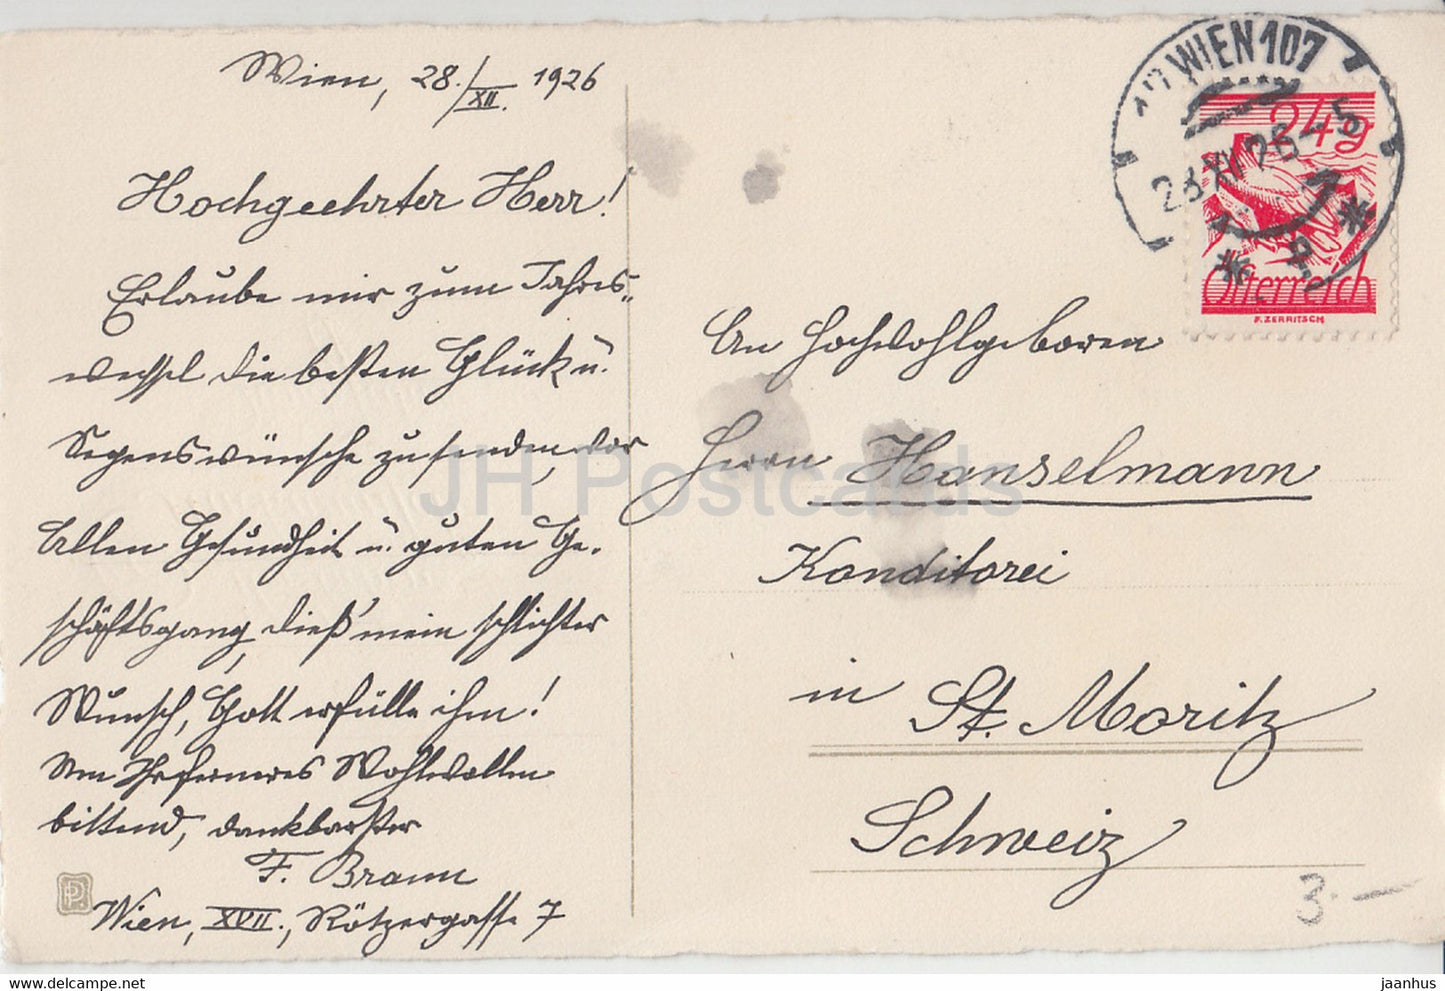 Wien, 28./XII. 1926
Hochgeehrter Herr!
Erlaube mir zum Jahres-
wechsel die besten Glück u.
Segenswünsche zu senden, vor
Allem Gesundheit u. guten Ge-
schäftsgang, dieß' mein schlichter
Wunsch, Gott erfülle ihn!
Um Ihr ferneres Wohlwollen
bittend, dankbarster
F. Braun
Wien, XVII., Rötzergasse 7
WIEN 107
28 XII 26 - 5
24g
Österreich
F. ZERRITSCH
An Hochwohlgeboren
Herrn Hanselmann
Konditorei
in St. Moritz
Schweiz
3.-
JH Postcards
jaanhus